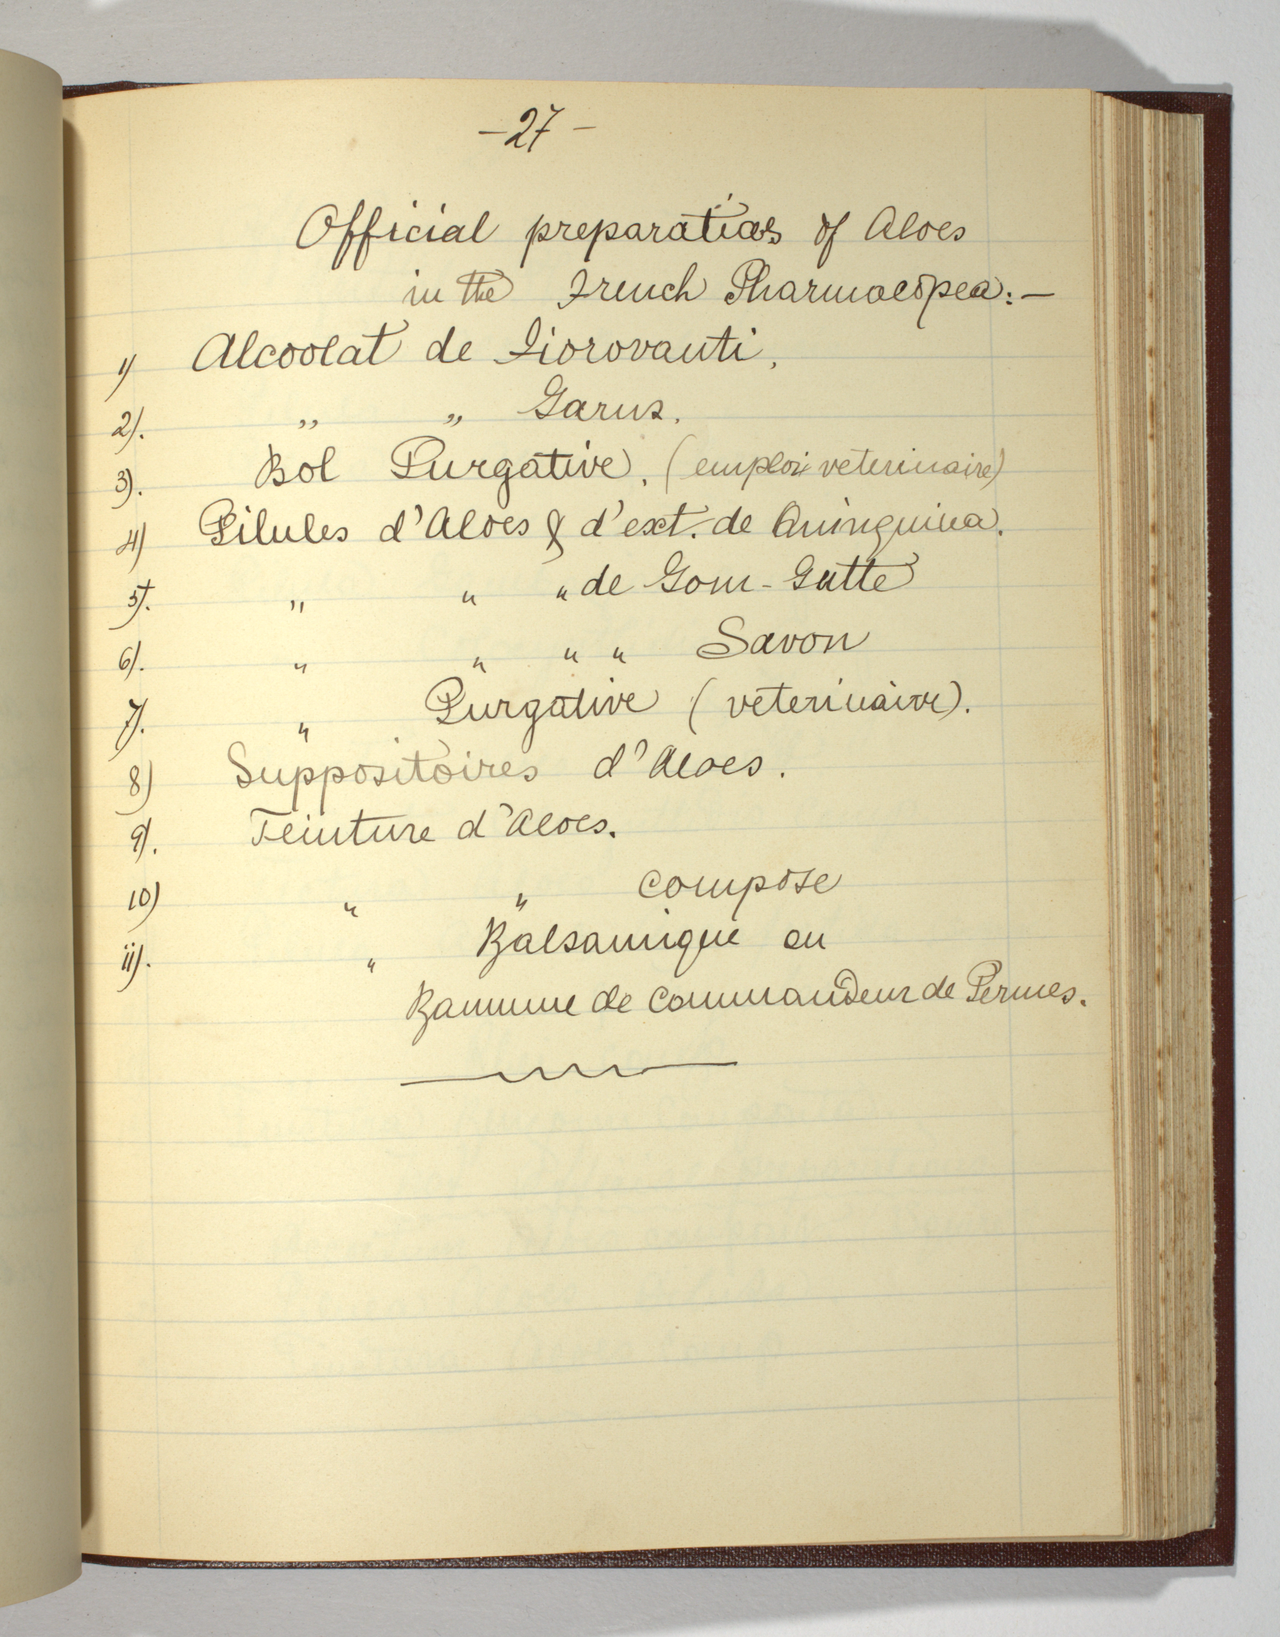 -27-
Official preparations of Aloes
in the French Pharmacopea:-
1) Alcoolat de Fiorovanti,
2). " " Garus.
3). Bol Purgative. (emploi veterinaire)
4) Pilules d'Aloes & d'ext. de Quinquina.
5). " " " de Gom-Gutte
6). " " " " Savon
7). " Purgative (veterinaire).
8) Suppositoires d'Aloes.
9). Teinture d'Aloes.
10) " " compose
11). " Balsamique ou
Bammme de Commandeur de Permes.